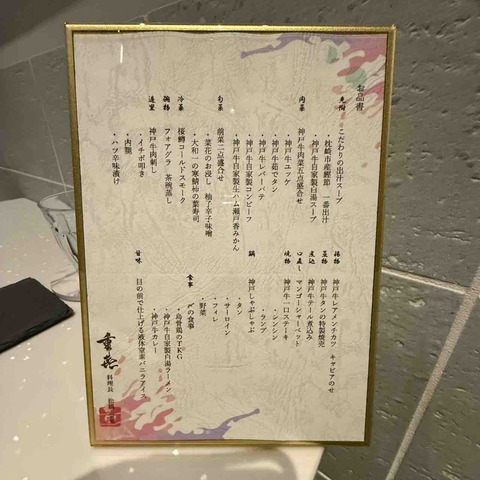 お品書
先附
こだわりの出汁スープ
・枕崎市産鰹節 一番出汁
・神戸牛自家製白湯スープ
肉菜
神戸牛肉菜五点盛合せ
・神戸牛ユッケ
・神戸牛茹でタン
・神戸牛レバーパテ
・神戸牛自家製コンビーフ
・神戸牛自家製生ハム瀬戸香みかん
旬菜
前菜二点盛合せ
・菜花のお浸し 柚子辛子味噌
・大和一の寒鯖柿の葉寿司
冷菜
桜鱒コールドスモーク
フォアグラ 茶碗蒸し
進肴
神戸牛肉刺し
・イチボ叩き
・内腿
・ハツ辛味漬け
揚物
神戸牛レアメンチカツ キャビアのせ
蒸物
神戸牛タンの特製焼売
煮込
神戸牛テール煮込み
口直し
マンゴーシャーベット
焼物
神戸牛一口ステーキ
・シンシン
・ランプ
鍋
神戸しゃぶしゃぶ
・タン
・サーロイン
・フィレ
・野菜
食事
〆の食事
・烏骨鶏のTKG
・神戸牛自家製白湯ラーメン
・神戸牛カレー
甘味
目の前で仕上げる液体窒素バニラアイス
料理長